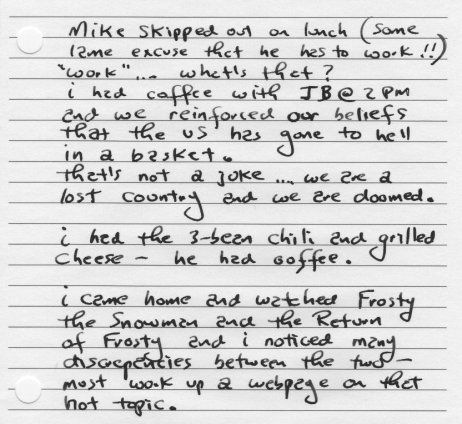 Mike skipped out on lunch (some
lame excuse that he has to work!!)
"work".... what's that?
i had coffee with JB @ 2PM
and we reinforced our beliefs
that the US has gone to hell
in a basket.
that's not a joke .... we are a
lost country and we are doomed.
i had the 3-bean chili and grilled
cheese - he had coffee.
i came home and watched Frosty
the Snowman and the Return
of Frosty and i noticed many
discrepencies between the two -
must work up a webpage on that
hot topic.